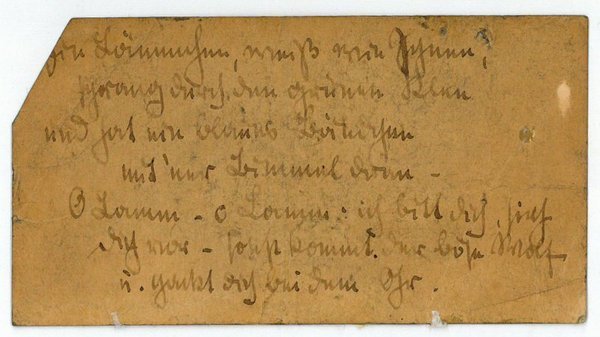 Ein Lämmchen, weiß wie Schnee,
sprang durch den grünen Klee
und hat ein blaues Bändchen
mit 'ner Bimmel dran –
O Lamm – o Lamm: ich bitt dich, sieh
dich vor – sonst kommt der böse Wolf
u. packt dich bei dem Ohr.